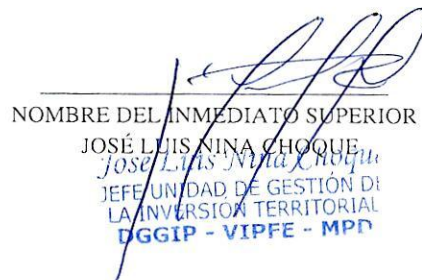 NOMBRE DEL INMEDIATO SUPERIOR
JOSÉ LUIS NINA CHOQUE
José Luis Nina Choqu
JEFE UNIDAD DE GESTIÓN DE
LA INVERSIÓN TERRITORIAL
DGGIP - VIPFE - MPD